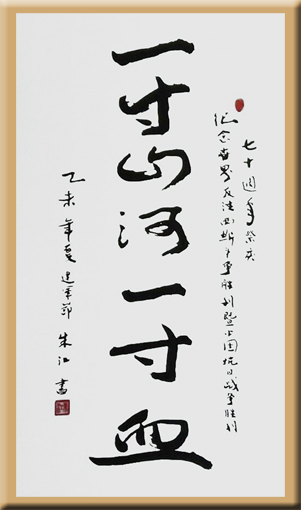 纪念世界反法西斯战争胜利暨中国抗日战争胜利
七十週年
一寸山河一寸血
乙未年夏建军节 朱江書